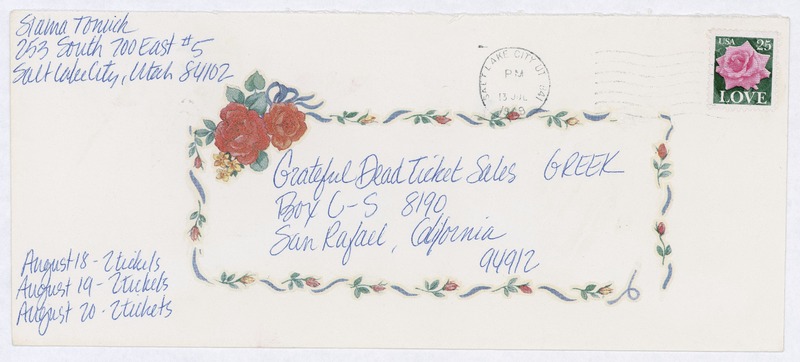 253 South 700 East #5
Salt Lake City, Utah 84102
SALT LAKE CITY UT
PM
13 JUL
1989
USA 25
LOVE
Grateful Dead Ticket Sales GREEK
Box C-S 8190
San Rafael, California
94912
August 18 - 2 tickets
August 19 - 2 tickets
August 20 - 2 tickets
6